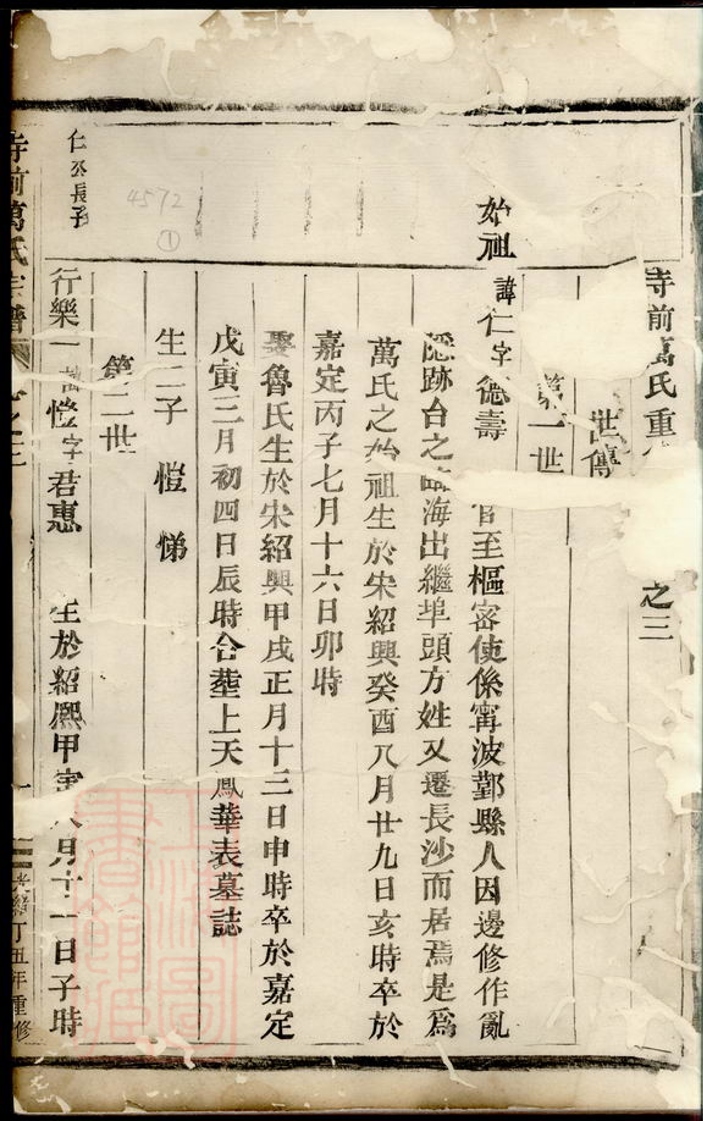 寺前萬氏重
之三
世傳
第一世
始祖 諱仁字德壽
官至樞密使係甯波鄞縣人因邊修作亂
隱跡台之臨海出繼埠頭方姓又遷長沙而居焉是爲
萬氏之始祖生於宋紹興癸酉八月廿九日亥時卒於
嘉定丙子七月十六日卯時
娶魯氏生於宋紹興甲戌正月十三日申時卒於嘉定
戊寅三月初四日辰時合塟上天鳳華表墓誌
生二子 愷 悌
第二世
仁公長子
行樂一 諱愷字君惠 生於紹熙甲寅八月十一日子時
寺前萬氏宗譜
光緒丁丑年重修
4572
①
上海圖書館藏